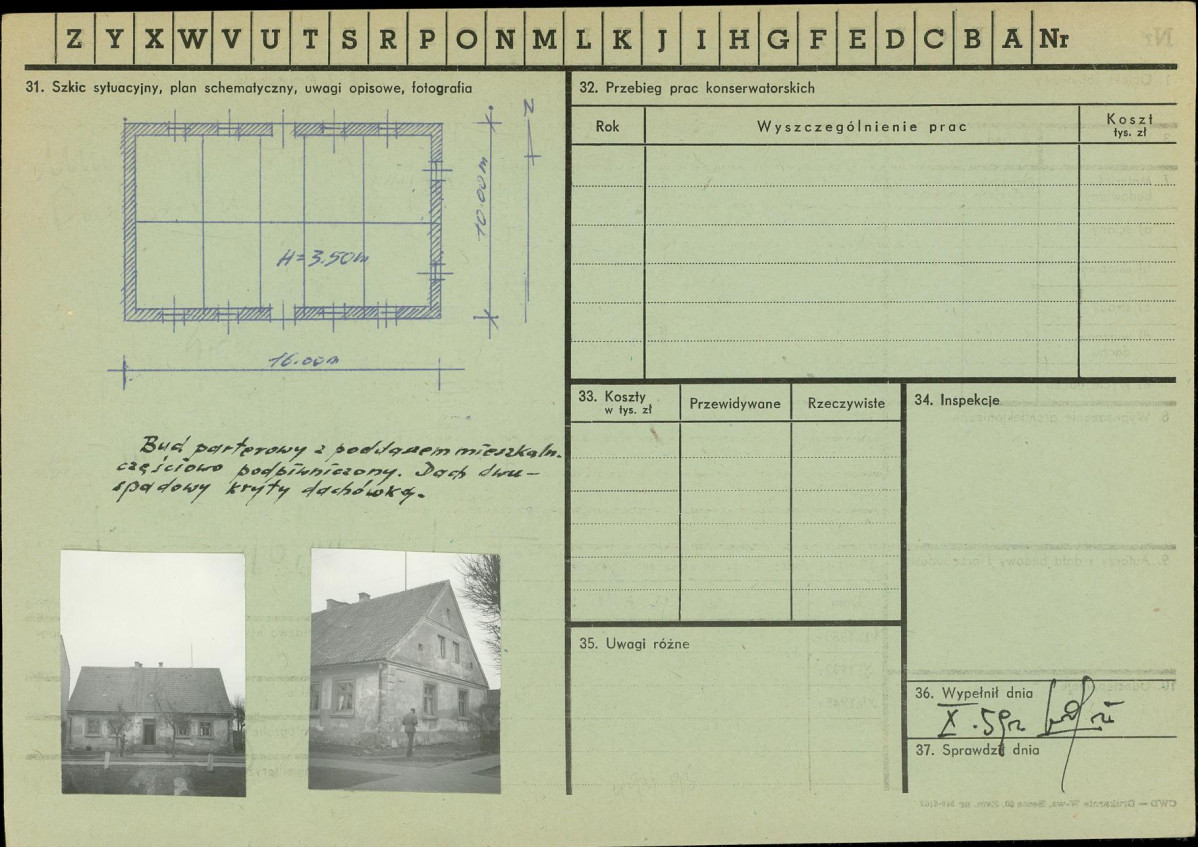 Z Y X W V U T S R P O N M L K J I H G F E D C B A Nr
31. Szkic sytuacyjny, plan schematyczny, uwagi opisowe, fotografia
N
10.00m
H=3.50m
16.00m
Bud parterowy z poddaszem mieszkaln.
częściowo podpiwniczony. Dach dwu-
spadowy kryty dachówką.
32. Przebieg prac konserwatorskich
Rok
Wyszczególnienie prac
Koszt
tys. zł
33. Koszty
w tys. zł
Przewidywane
Rzeczywiste
34. Inspekcje
35. Uwagi różne
36. Wypełnił dnia
X. 59r
37. Sprawdził dnia
CWD — Drukarnia W-wa,